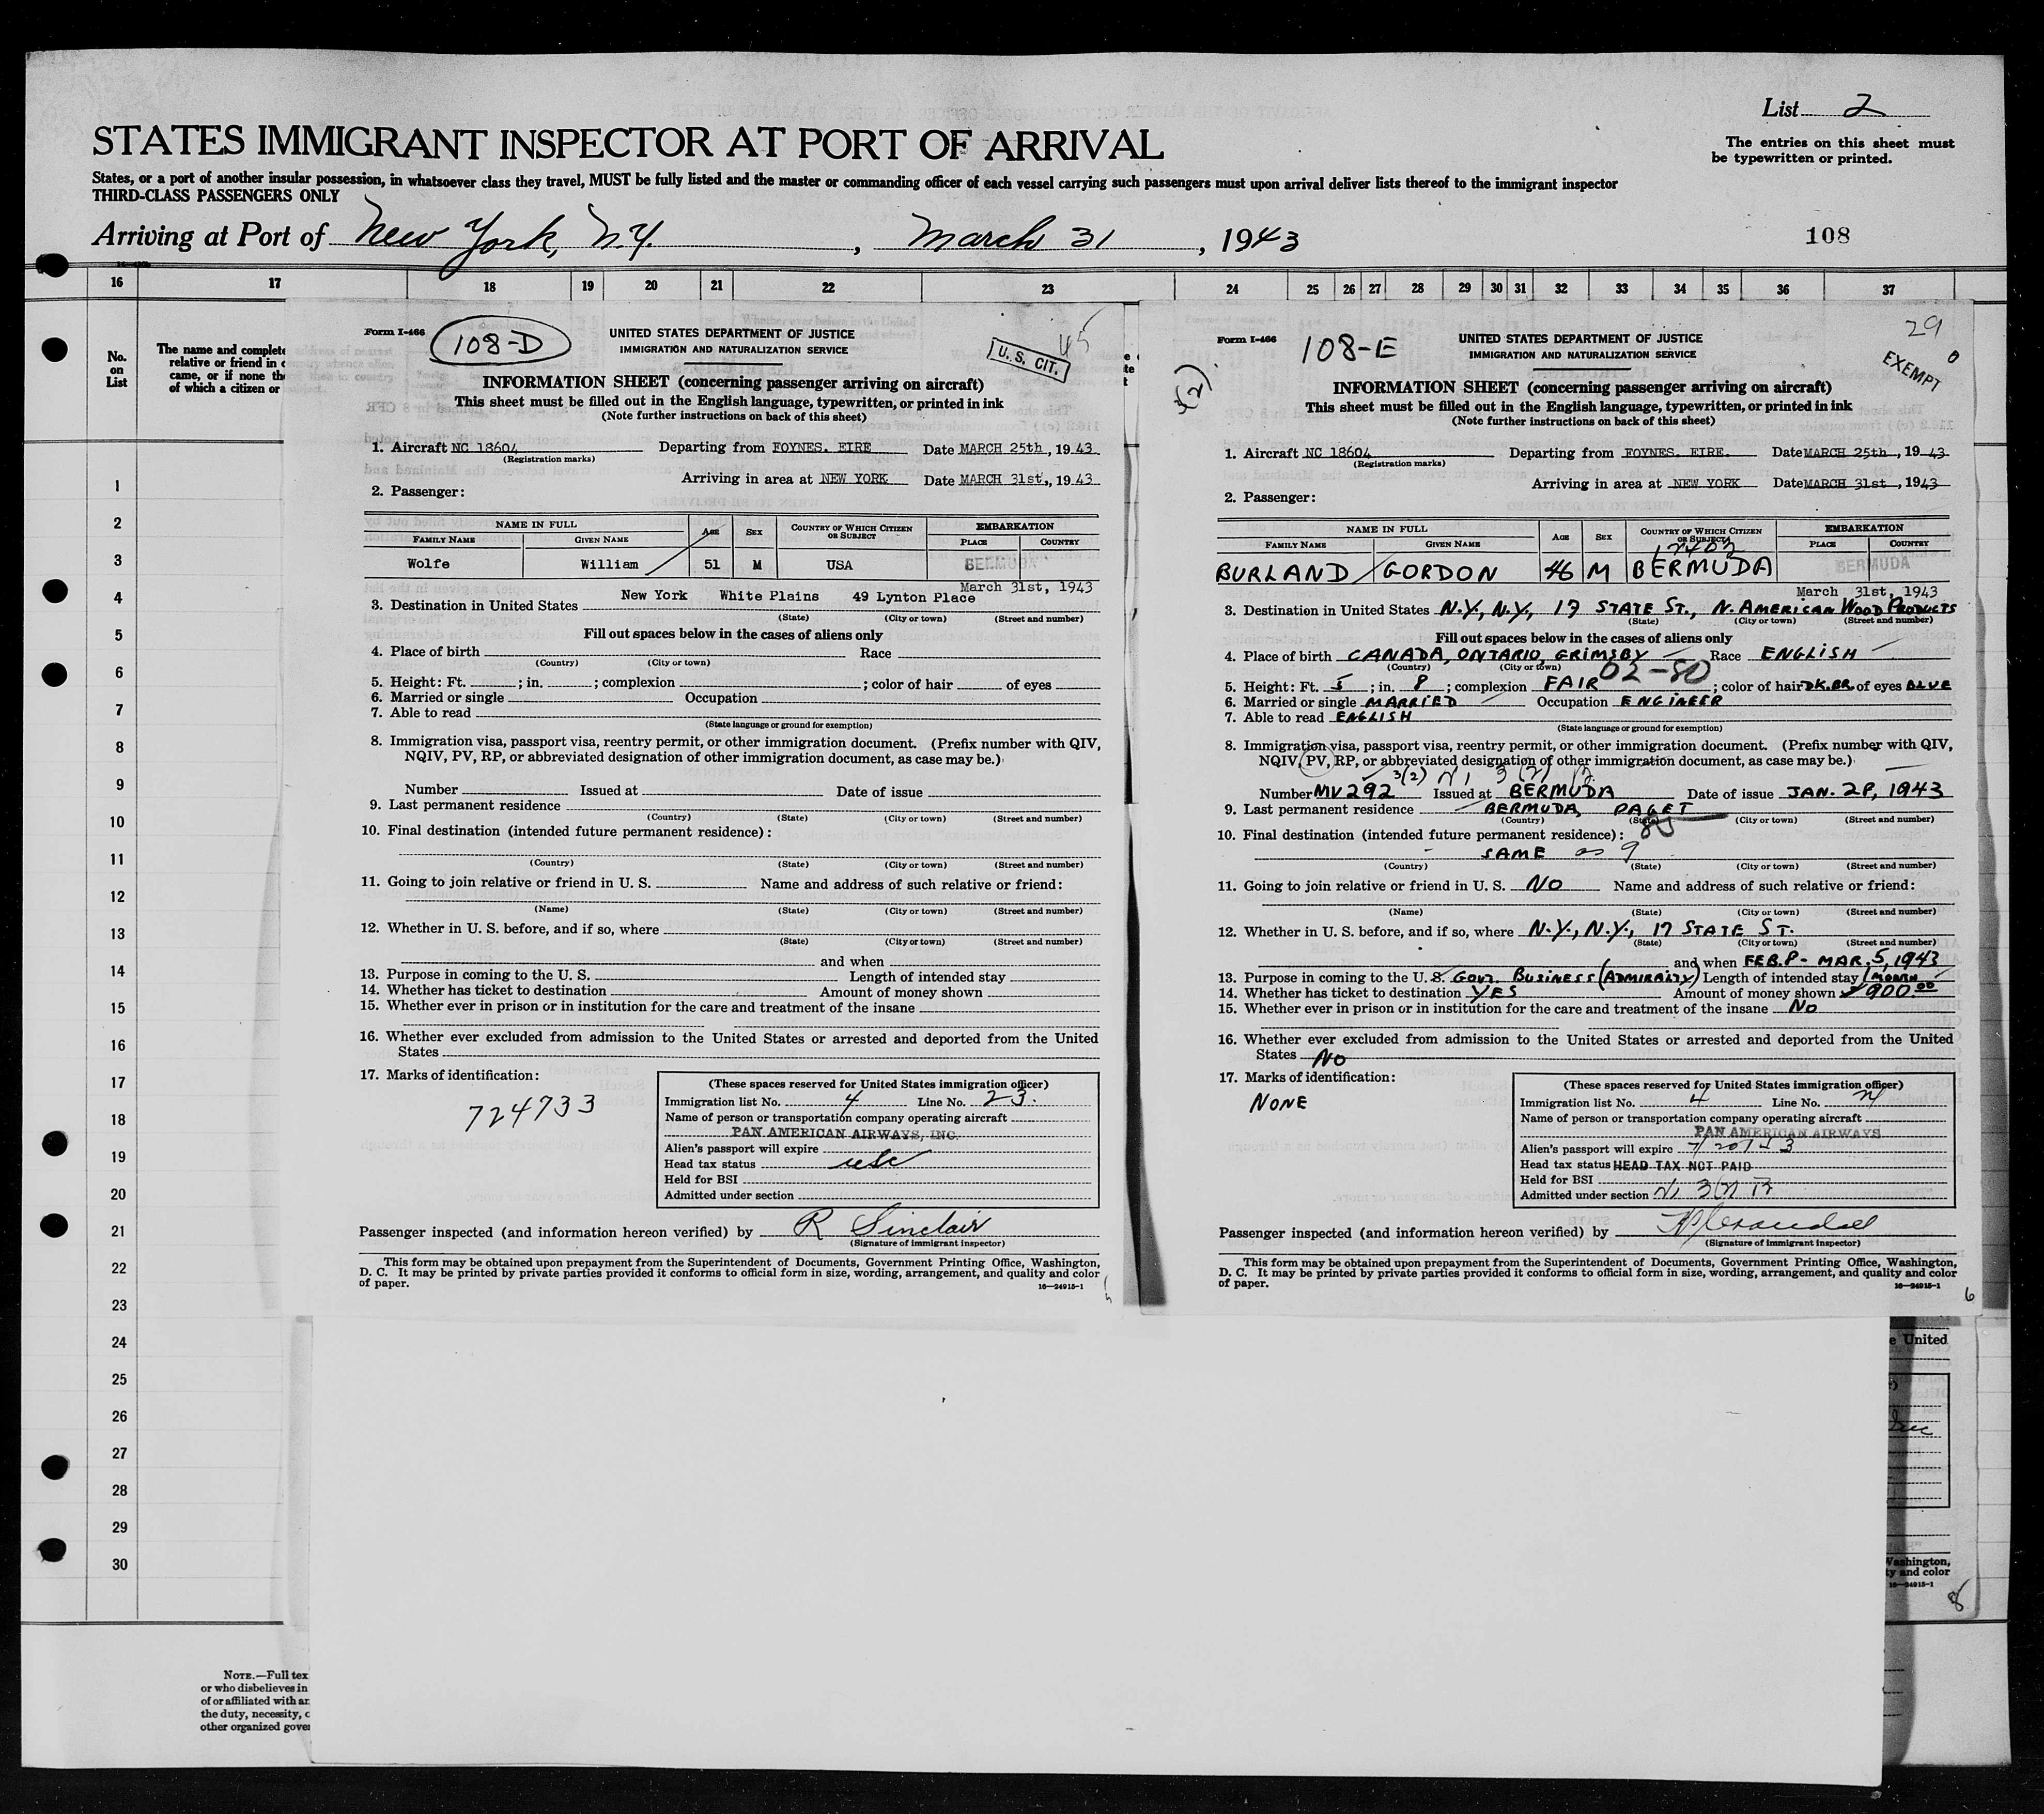 List 2
STATES IMMIGRANT INSPECTOR AT PORT OF ARRIVAL
The entries on this sheet must
be typewritten or printed.
States, or a port of another insular possession, in whatsoever class they travel, MUST be fully listed and the master or commanding officer of each vessel carrying such passengers must upon arrival deliver lists thereof to the immigrant inspector
THIRD-CLASS PASSENGERS ONLY
Arriving at Port of New York, N.Y., March 31, 1943
108
16 17 18 19 20 21 22 23 24 25 26 27 28 29 30 31 32 33 34 35 36 37
No.
on
List
The name and complete
relative or friend in c
came, or if none the
of which a citizen or
1
2
3
4
5
6
7
8
9
10
11
12
13
14
15
16
17
18
19
20
21
22
23
24
25
26
27
28
29
30
NOTE.—Full tex
or who disbelieves in
of or affiliated with ar
the duty, necessity, o
other organized gove
Form I-466
108-D
UNITED STATES DEPARTMENT OF JUSTICE
IMMIGRATION AND NATURALIZATION SERVICE
45
U. S. CIT.
INFORMATION SHEET (concerning passenger arriving on aircraft)
This sheet must be filled out in the English language, typewritten, or printed in ink
(Note further instructions on back of this sheet)
1. Aircraft NC 18604 Departing from FOYNES. EIRE Date MARCH 25th, 1943
(Registration marks)
Arriving in area at NEW YORK Date MARCH 31st, 1943
2. Passenger:
NAME IN FULL AGE SEX COUNTRY OF WHICH CITIZEN OR SUBJECT EMBARKATION
FAMILY NAME GIVEN NAME PLACE COUNTRY
Wolfe William 51 M USA BERMUDA
March 31st, 1943
3. Destination in United States New York White Plains 49 Lynton Place
(State) (City or town) (Street and number)
Fill out spaces below in the cases of aliens only
4. Place of birth Race
(Country) (City or town)
5. Height: Ft. ; in. ; complexion ; color of hair of eyes
6. Married or single Occupation
7. Able to read
(State language or ground for exemption)
8. Immigration visa, passport visa, reentry permit, or other immigration document. (Prefix number with QIV,
NQIV, PV, RP, or abbreviated designation of other immigration document, as case may be.)
Number Issued at Date of issue
9. Last permanent residence
(Country) (State) (City or town) (Street and number)
10. Final destination (intended future permanent residence):
(Country) (State) (City or town) (Street and number)
11. Going to join relative or friend in U. S. Name and address of such relative or friend:
(Name) (State) (City or town) (Street and number)
12. Whether in U. S. before, and if so, where
(State) (City or town) (Street and number)
and when
13. Purpose in coming to the U. S. Length of intended stay
14. Whether has ticket to destination Amount of money shown
15. Whether ever in prison or in institution for the care and treatment of the insane
16. Whether ever excluded from admission to the United States or arrested and deported from the United
States
17. Marks of identification:
724733
(These spaces reserved for United States immigration officer)
Immigration list No. 4 Line No. 23.
Name of person or transportation company operating aircraft
PAN AMERICAN AIRWAYS, INC.
Alien's passport will expire
Head tax status usc
Held for BSI
Admitted under section
Passenger inspected (and information hereon verified) by R Sinclair
(Signature of immigrant inspector)
This form may be obtained upon prepayment from the Superintendent of Documents, Government Printing Office, Washington,
D. C. It may be printed by private parties provided it conforms to official form in size, wording, arrangement, and quality and color
of paper.
16—24915-1
Form I-466
108-E
(2)
UNITED STATES DEPARTMENT OF JUSTICE
IMMIGRATION AND NATURALIZATION SERVICE
29
EXEMPT
INFORMATION SHEET (concerning passenger arriving on aircraft)
This sheet must be filled out in the English language, typewritten, or printed in ink
(Note further instructions on back of this sheet)
1. Aircraft NC 18604 Departing from FOYNES. EIRE. Date MARCH 25th, 1943
(Registration marks)
Arriving in area at NEW YORK Date MARCH 31st, 1943
2. Passenger:
NAME IN FULL AGE SEX COUNTRY OF WHICH CITIZEN OR SUBJECT EMBARKATION
FAMILY NAME GIVEN NAME PLACE COUNTRY
BURLAND GORDON 46 M BERMUDA BERMUDA
March 31st, 1943
3. Destination in United States N.Y., N.Y., 17 STATE ST., N. AMERICAN WOOD PRODUCTS
(State) (City or town) (Street and number)
Fill out spaces below in the cases of aliens only
4. Place of birth CANADA, ONTARIO, GRIMSBY Race ENGLISH
(Country) (City or town)
02-80
5. Height: Ft. 5; in. 8; complexion FAIR; color of hair DK.BR of eyes BLUE
6. Married or single MARRIED Occupation ENGINEER
7. Able to read ENGLISH
(State language or ground for exemption)
8. Immigration visa, passport visa, reentry permit, or other immigration document. (Prefix number with QIV,
NQIV, PV, RP, or abbreviated designation of other immigration document, as case may be.)
3(2)
Number MV292 Issued at BERMUDA Date of issue JAN. 28, 1943
9. Last permanent residence BERMUDA, PAGET
(Country) (State) (City or town) (Street and number)
10. Final destination (intended future permanent residence):
SAME as 9
(Country) (State) (City or town) (Street and number)
11. Going to join relative or friend in U. S. NO Name and address of such relative or friend:
(Name) (State) (City or town) (Street and number)
12. Whether in U. S. before, and if so, where N.Y., N.Y., 17 STATE ST.
(State) (City or town) (Street and number)
and when FEB. 8 - MAR. 5, 1943
13. Purpose in coming to the U. S. GOVT. BUSINESS (ADMIRALTY) Length of intended stay 1 MONTH
14. Whether has ticket to destination YES Amount of money shown $900.00
15. Whether ever in prison or in institution for the care and treatment of the insane NO
16. Whether ever excluded from admission to the United States or arrested and deported from the United
States NO
17. Marks of identification:
NONE
(These spaces reserved for United States immigration officer)
Immigration list No. 4 Line No. 24
Name of person or transportation company operating aircraft
PAN AMERICAN AIRWAYS
Alien's passport will expire
Head tax status HEAD TAX NOT PAID
Held for BSI
Admitted under section
Passenger inspected (and information hereon verified) by
(Signature of immigrant inspector)
This form may be obtained upon prepayment from the Superintendent of Documents, Government Printing Office, Washington,
D. C. It may be printed by private parties provided it conforms to official form in size, wording, arrangement, and quality and color
of paper.
16—24915-1
6
e United
Washington,
ty and color
16—24915-1
8